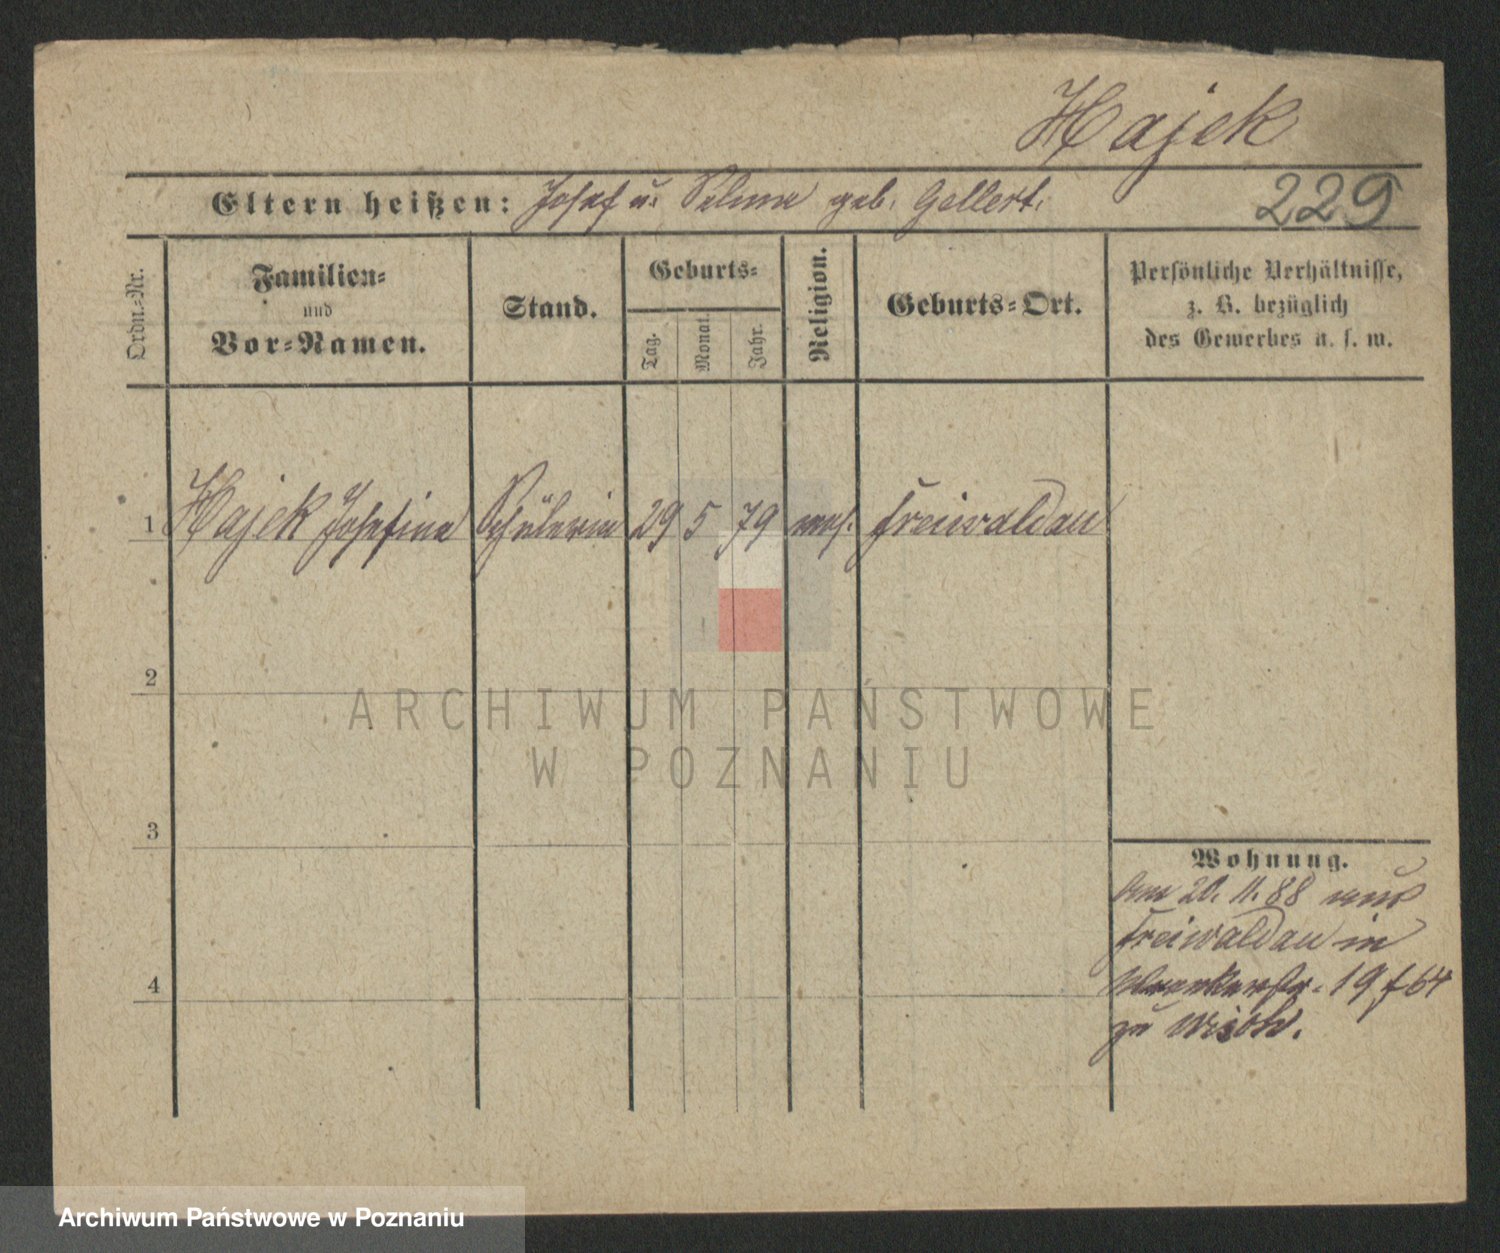 Hajek
229
Eltern heißen: Josef u. Selma geb. Gellert.
Ordn.-Nr.
Familien-
und
Vor-Namen.
Stand.
Geburts-
Tag.
Monat.
Jahr.
Religion.
Geburts-Ort.
Persönliche Verhältnisse,
z. B. bezüglich
des Gewerbes u. s. w.
1 Hajek Josefine Schülerin 29 5 79 mos. Freiwaldau
2
3
4
Wohnung.
Am 20. 11. 88 aus
Freiwaldau in
19
zu
ARCHIWUM PAŃSTWOWE
W POZNANIU
Archiwum Państwowe w Poznaniu